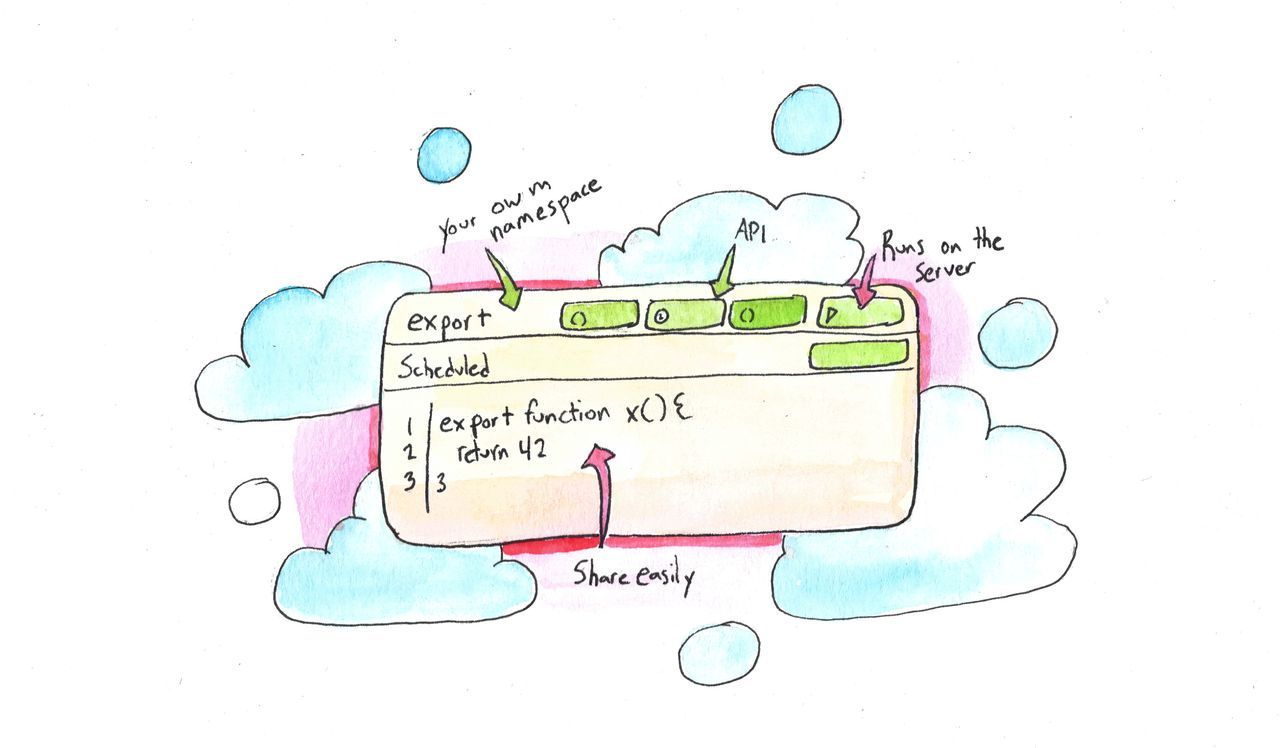 your own
namespace
API
Runs on the
Server
export
Scheduled
1 export function x() {
2 return 42
3 }
Share easily